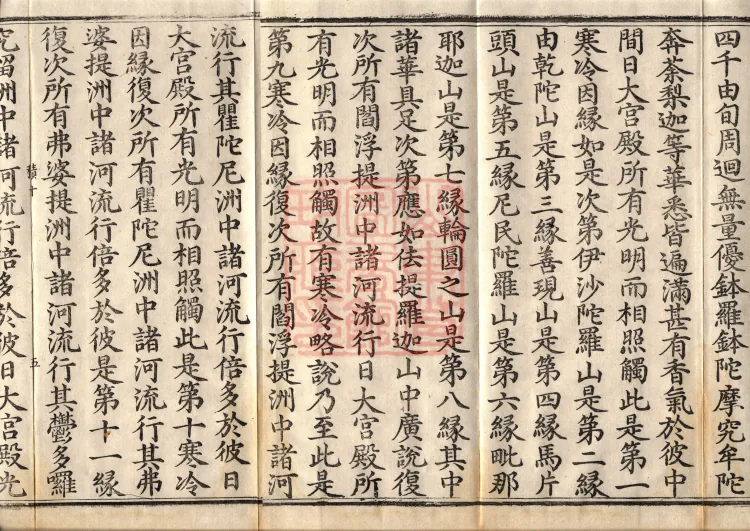 四千由旬周迴無量優鉢羅鉢陀摩究牟陀
奔荼梨迦等華悉皆遍滿甚有香氣於彼中
間日大宮殿所有光明而相照觸此是第一
寒冷因緣如是次第伊沙陀羅山是第二緣
由乾陀山是第三緣善現山是第四緣馬片
頭山是第五緣尼民陀羅山是第六緣毗那
耶迦山是第七緣輪圓之山是第八緣其中
諸華具足次第應如佉提羅迦山中廣說復
次所有閻浮提洲中諸河流行日大宮殿所
有光明而相照觸故有寒冷略說乃至此是
第九寒冷因緣復次所有閻浮提洲中諸河
流行其瞿陀尼洲中諸河流行倍多於彼日
大宮殿所有光明而相照觸此是第十寒冷
因緣復次所有瞿陀尼洲中諸河流行其弗
婆提洲中諸河流行倍多於彼是第十一緣
復次所有弗婆提洲中諸河流行其鬱多囉
究留洲中諸河流行倍多於彼日大宮殿光